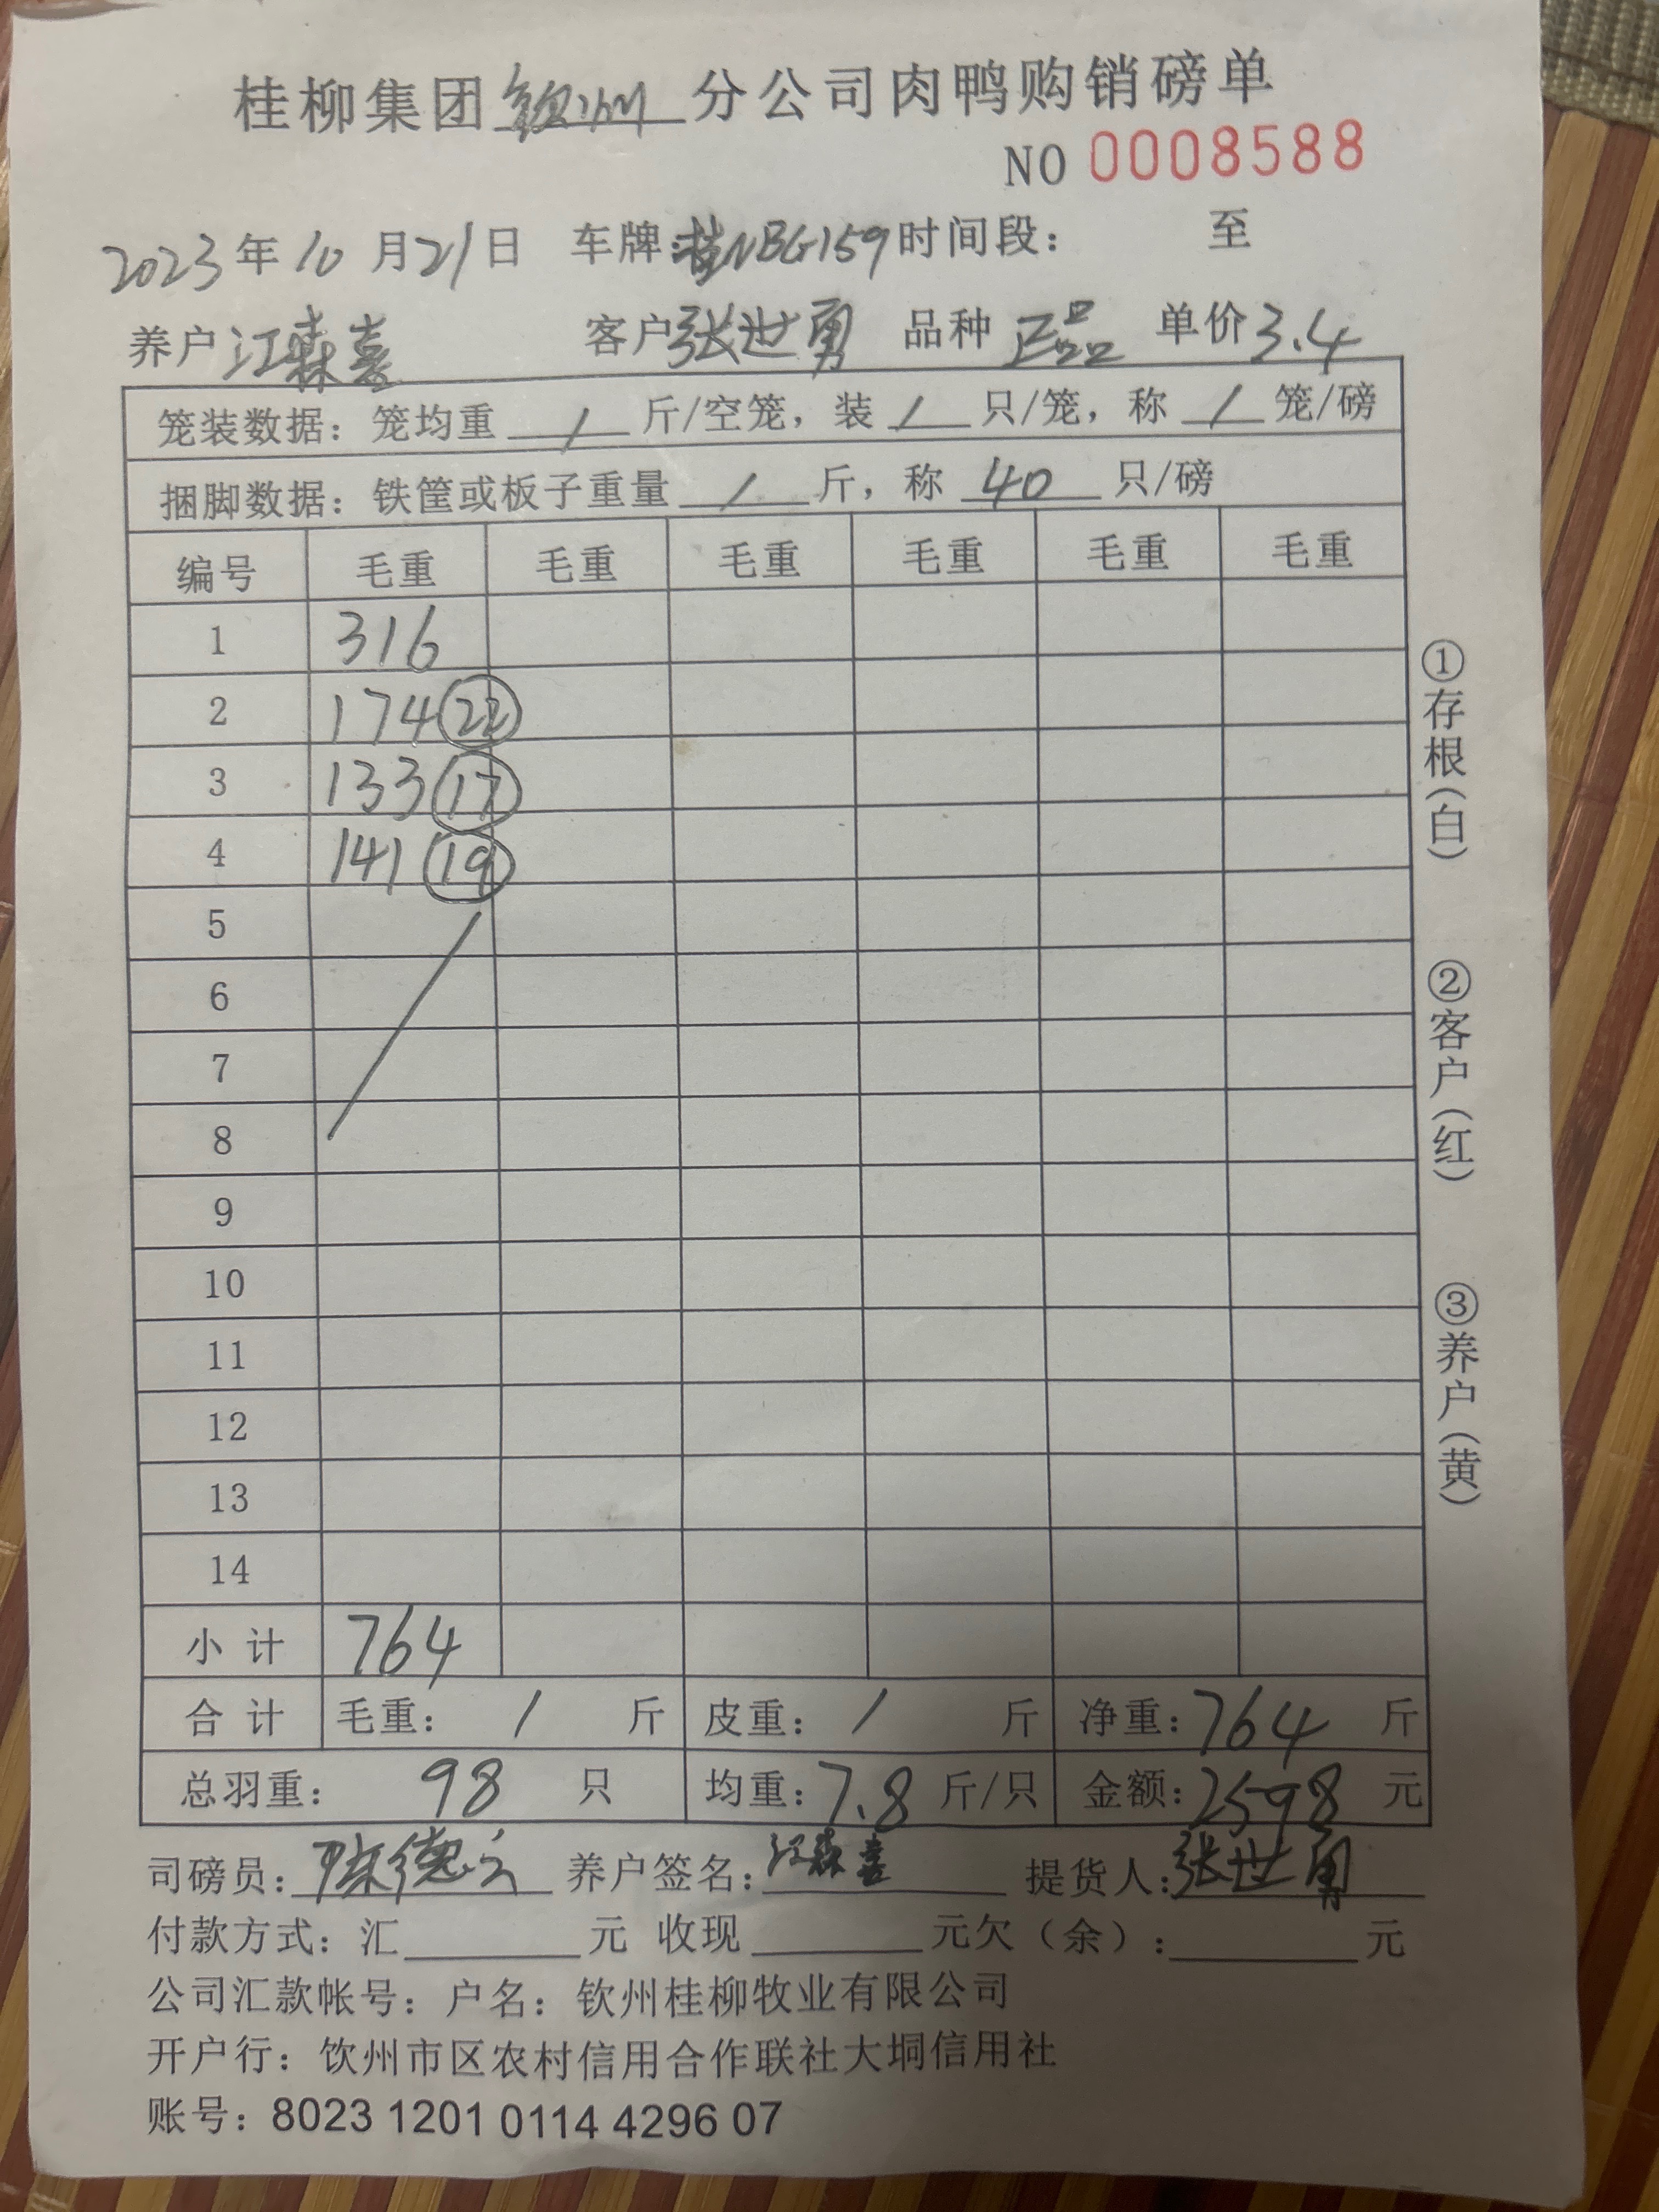 桂柳集团钦州分公司肉鸭购销磅单
NO 0008588
2023年10月21日 车牌:桂NBG159 时间段: 至
养户 江森喜 客户 张世勇 品种 正品 单价 3.4
笼装数据:笼均重 / 斤/空笼,装 / 只/笼,称 / 笼/磅
捆脚数据:铁筐或板子重量 / 斤,称 40 只/磅
编号 毛重 毛重 毛重 毛重 毛重 毛重
1 316
2 174 22
3 133 17
4 141 19
5
6
7
8
9
10
11
12
13
14
小计 764
合计 毛重: / 斤 皮重: / 斤 净重:764 斤
总羽重: 98 只 均重:7.8 斤/只 金额:2598 元
司磅员:陈德云 养户签名:江森喜 提货人:张世勇
付款方式:汇 元 收现 元欠(余): 元
公司汇款帐号:户名:钦州桂柳牧业有限公司
开户行:钦州市区农村信用合作联社大垌信用社
账号:8023 1201 0114 4296 07
①存根(白) ②客户(红) ③养户(黄)